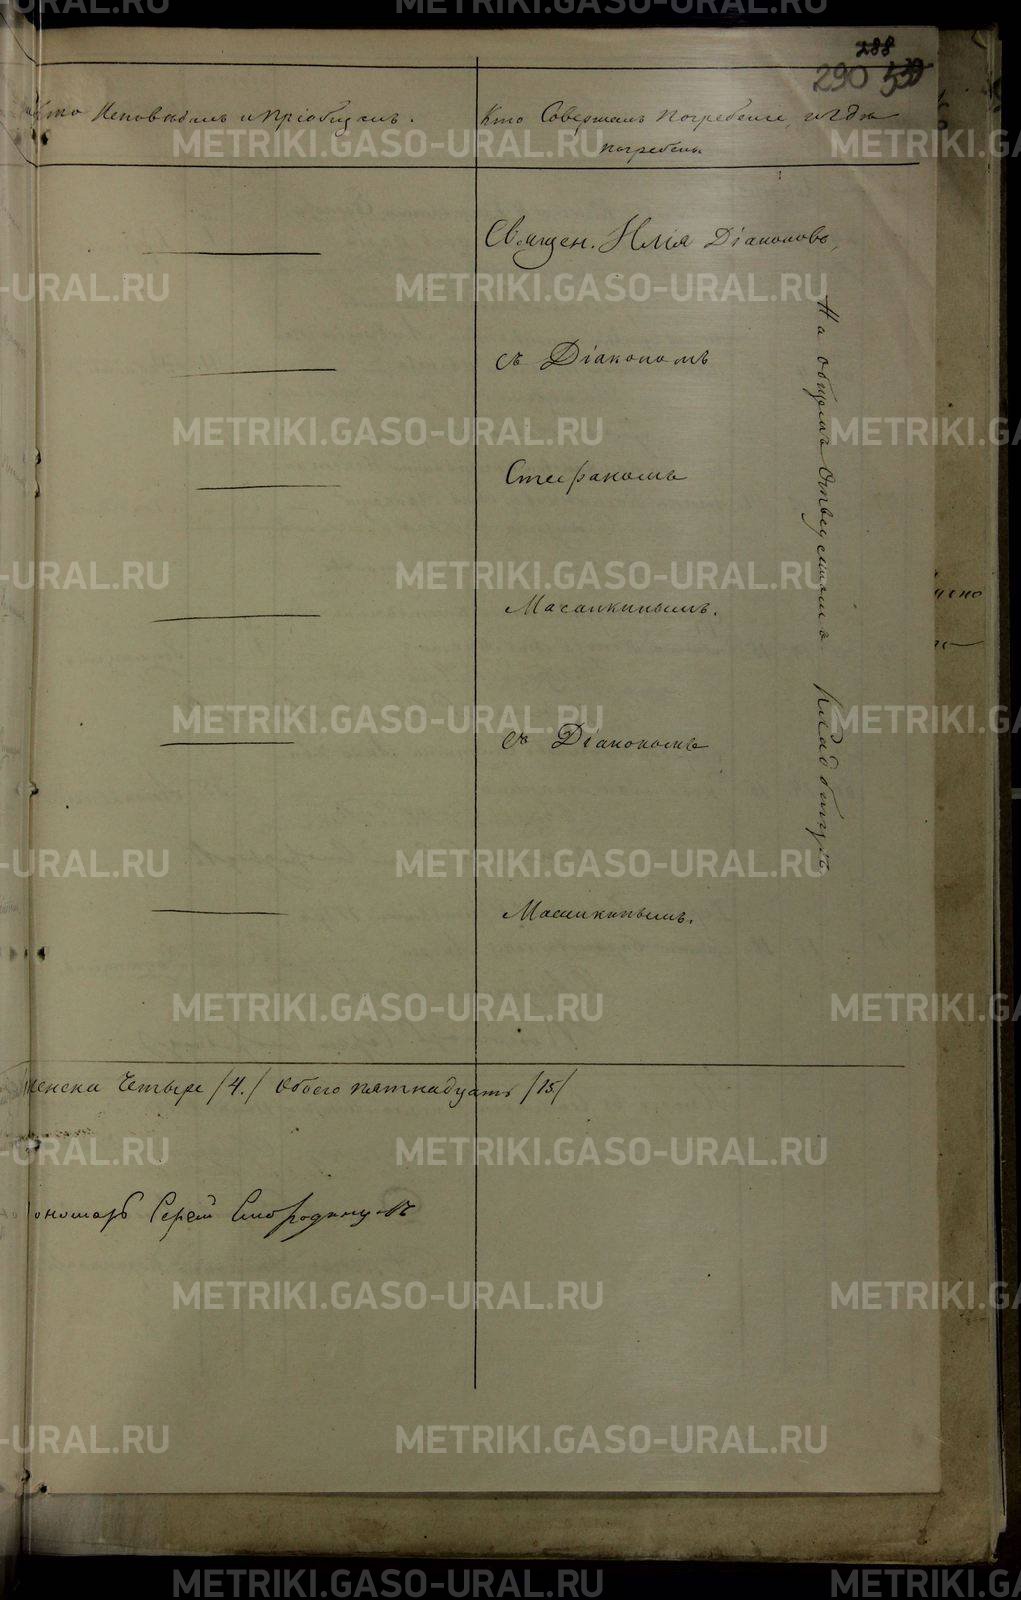 288
290
Кто Исповѣдалъ и пріобщалъ.
Кто Совершалъ погребеніе, и гдѣ
погребены
Священ. Илія Діаконовъ,
съ Діакономъ
Стефаномъ
Масалкинымъ.
съ Діакономъ
Масалкинымъ.
На общемъ Отведенномъ Кладбищѣ.
женска Четыре /4./ Обоего пятнадцать /15/
пономарь Сергѣй Смородинцовъ
METRIKI.GASO-URAL.RU